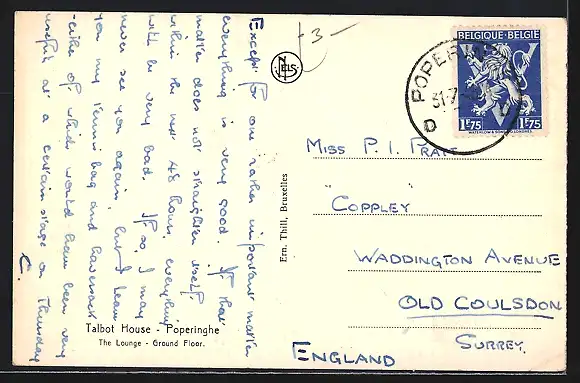 Except for one rather important matter
everything is very good. If that
matter does not straighten itself
within the next 48 hours, everything
will be very bad. If so, I may
never see you again, but I leave
you my tennis bag and haversack
either of which would have been very
useful at a certain stage on Thursday
C.
-3-
NELS
Ern. Thill, Bruxelles
Talbot House - Poperinghe
The Lounge - Ground Floor.
BELGIQUE·BELGIE
1F75 1F75
WATERLOW & SONS LD LONDRES.
POPER
31-7
D
MISS P. I. PRATT
"COPPLEY"
WADDINGTON AVENUE
OLD COULSDON
SURREY.
ENGLAND